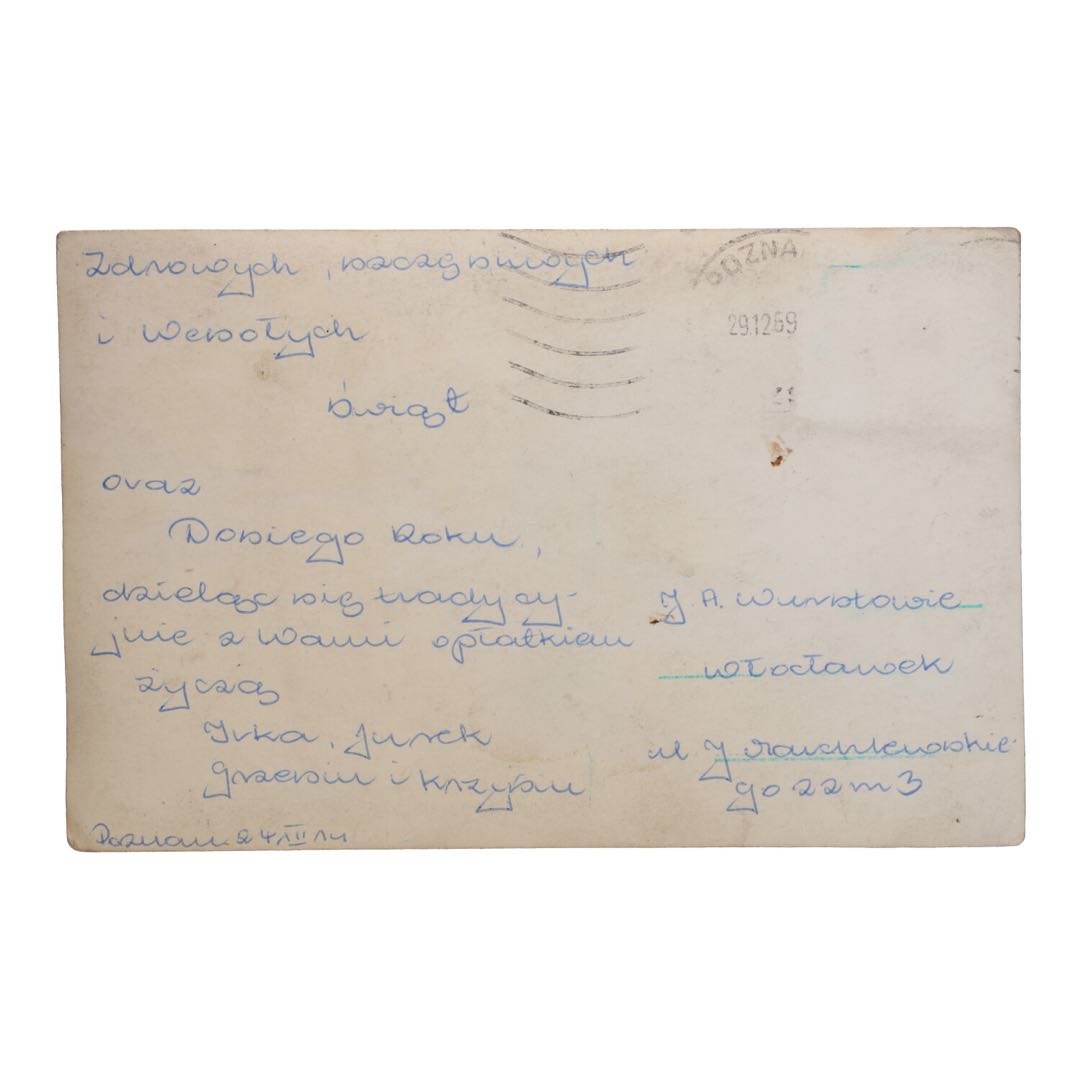 Zdrowych, szczęśliwych
i Wesołych
Świąt
oraz
Dosiego Roku,
dzieląc się tradycy-
jnie z Wami opłatkiem
życzą
Irka, Jurek
Grzesiu i Krzysiu
Poznań 24
POZNA
29.12.69
J A.
Włocławek
ul J
go 22 m 3